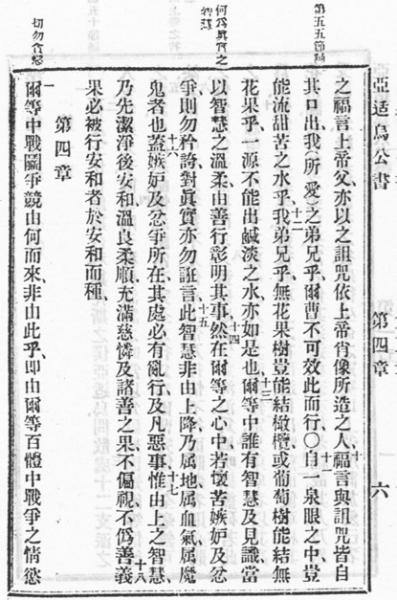 亞适烏公書　第四章　六
何爲真實之
智慧
切勿貪慾
之福言上帝父、亦以之詛咒依上帝肖像所造之人、十福言與詛咒皆自
其口出、我(所愛)之弟兄乎、爾曹不可效此而行○十一自一泉眼之中、豈
能流甜苦之水乎、十二我弟兄乎、無花果樹豈能結橄欖、或葡萄樹能結無
花果乎、一源不能出鹹淡之水、亦如是也、十三爾等中誰有智慧及見識、當
以智慧之溫柔、由善行彰明其事、十四然在爾等之心中、若懷苦嫉妒及忿
爭、則勿矜誇、對眞實亦勿誑言、十五此智慧非由上降、乃属地属血氣属魔
鬼者也、十六蓋嫉妒及忿爭所在、其處必有亂行及凡惡事、十七惟由上之智慧、
乃先潔淨、後安和、溫良、柔順、充滿慈憐及諸善之果、不偏視、不僞善、十八義
果必被行安和者於安和而種、
第四章
一爾等中戰鬬爭競由何而來、非由此乎、即由爾等百體中戰爭之情慾